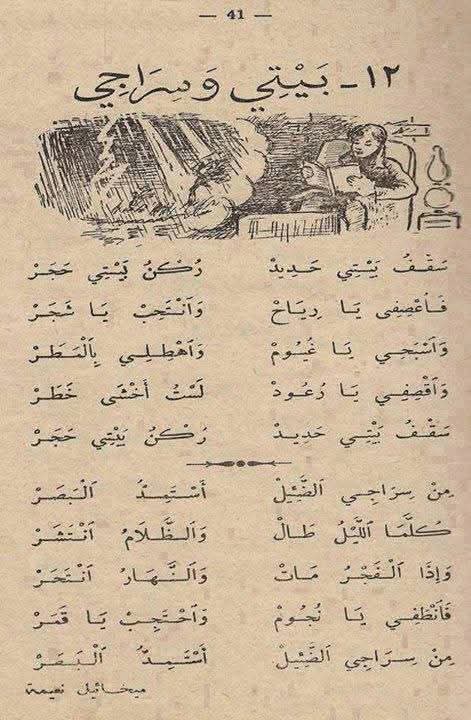 — 41 —
١٢ - بَيْتِي وَسِرَاجِي
سَقْفُ بَيْتِي حَدِيدْ رُكْنُ بَيْتِي حَجَرْ
فَاعْصِفِي يَا رِيَاحْ وَانْتَحِبْ يَا شَجَرْ
وَاسْبَحِي يَا غُيُومْ وَاهْطِلِي بِالْمَطَرْ
وَاقْصِفِي يَا رُعُودْ لَسْتُ أَخْشَى خَطَرْ
سَقْفُ بَيْتِي حَدِيدْ رُكْنُ بَيْتِي حَجَرْ
مِنْ سِرَاجِي الضَّئِيلْ أَسْتَمِدُّ الْبَصَرْ
كُلَّمَا اللَّيْلُ طَالْ وَالظَّلَامُ انْتَشَرْ
وَإِذَا الْفَجْرُ مَاتْ وَالنَّهَارُ انْتَحَرْ
فَانْطَفِي يَا نُجُومْ وَاحْتَجِبْ يَا قَمَرْ
مِنْ سِرَاجِي الضَّئِيلْ أَسْتَمِدُّ الْبَصَرْ
ميخائيل نعيمة